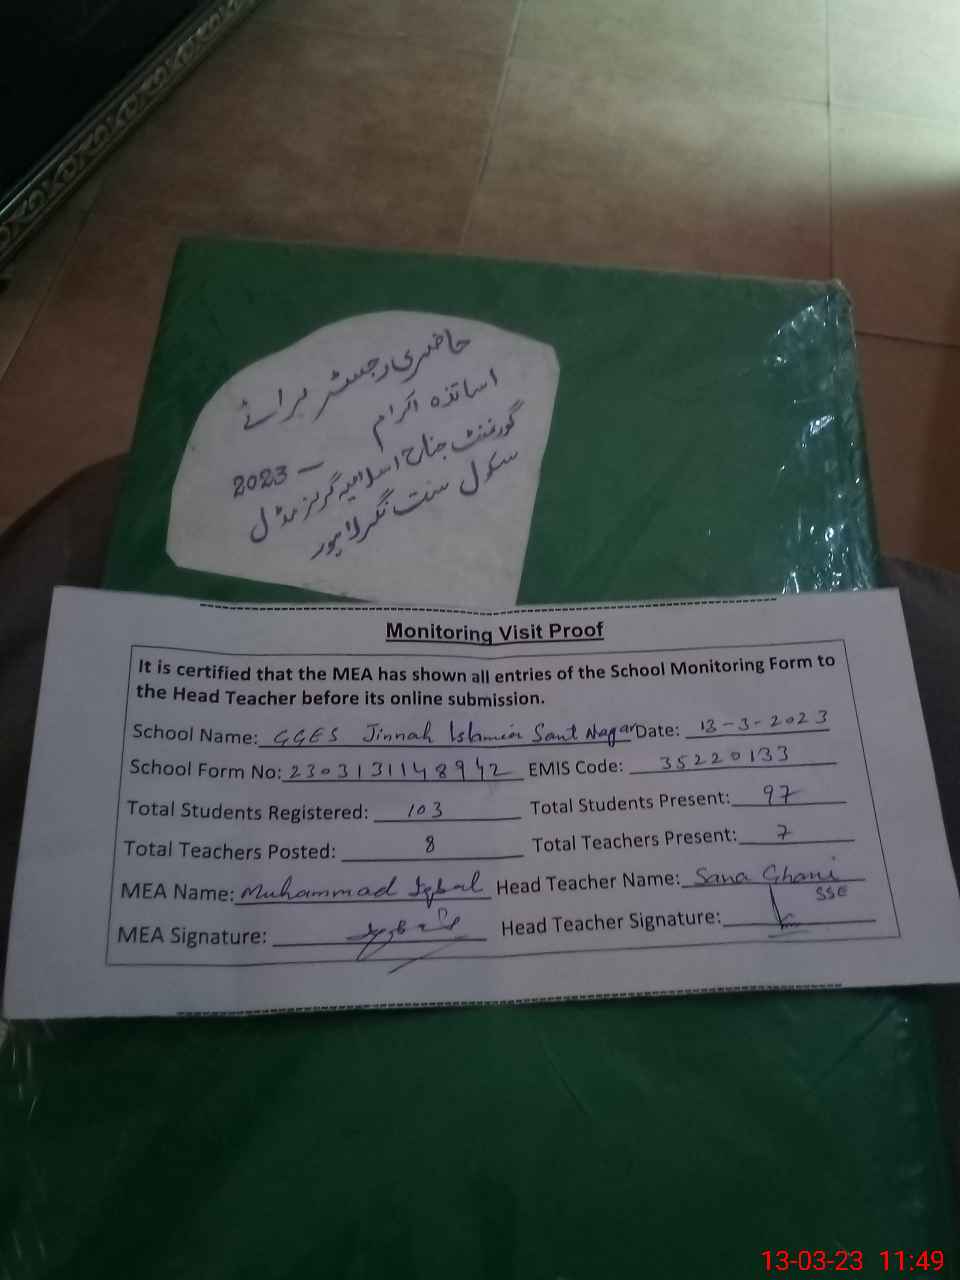 حاضری رجسٹر برائے
اساتذہ اکرام
2023 –
گورنمنٹ جناح اسلامیہ گرلز مڈل
سکول سنت نگر لاہور
Monitoring Visit Proof
It is certified that the MEA has shown all entries of the School Monitoring Form to
the Head Teacher before its online submission.
School Name: GGES Jinnah Islamia Sant Nagar Date: 13-3-2023
School Form No: 2303131148942 EMIS Code: 35220133
Total Students Registered: 103 Total Students Present: 97
Total Teachers Posted: 8 Total Teachers Present: 7
MEA Name: Muhammad Iqbal Head Teacher Name: Sana Ghani
SSE
MEA Signature: Head Teacher Signature:
13-03-23 11:49